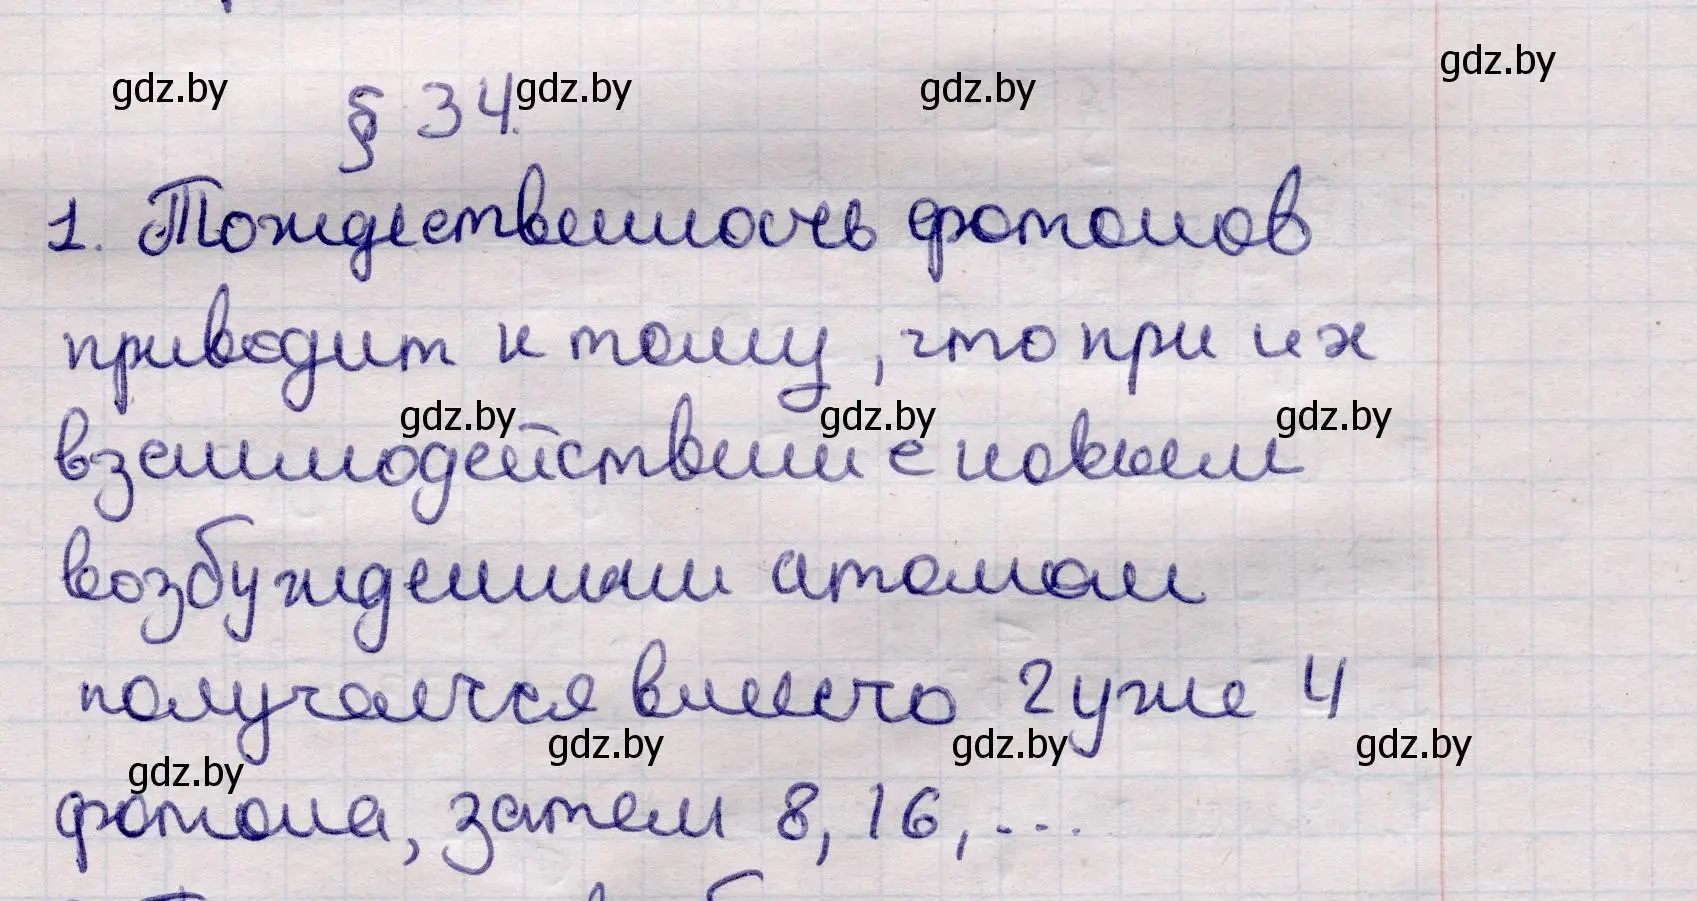 gdz.by
gdz.by gdz.by gdz.by
§ 34.
1. Тождественность фотонов
приводит к тому, что при их
gdz.by gdz.by gdz.by
взаимодействии с новыми
возбужденными атомами
получается вместо 2 уже 4
gdz.by gdz.by gdz.by
gdz.by
фотона, затем 8, 16, ...